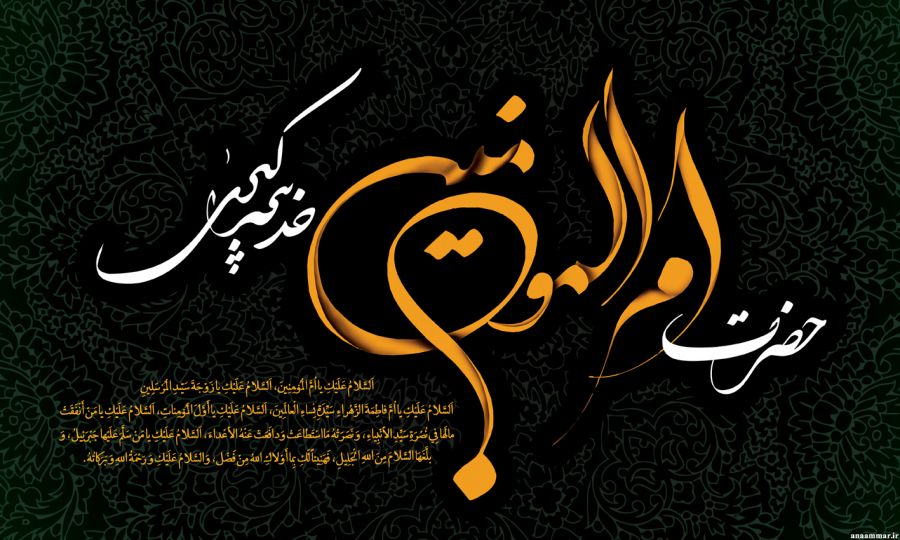 حضرت
ام المومنین
خدیجه کبری
اَلسَّلامُ عَلَيْكِ يا اُمَّ الْمُؤمِنينَ، اَلسَّلامُ عَلَيْكِ يا زَوْجَةَ سَيِّدِ الْمُرْسَلينَ
اَلسَّلامُ عَلَيْكِ يا اُمَّ فاطِمَةَ الزَّهْراءِ سَيِّدَةِ نِساءِ الْعالَمينَ، اَلسَّلامُ عَلَيْكِ يا اَوَّلَ الْمُؤمِناتِ، اَلسَّلامُ عَلَيْكِ يا مَنْ اَنْفَقَتْ
مالَها في نُصْرَةِ سَيِّدِ الْاَنْبِياءِ، وَنَصَرَتْهُ مَا اسْتَطاعَتْ وَدافَعَتْ عَنْهُ الْاَعْداءَ، اَلسَّلامُ عَلَيْكِ يا مَنْ سَلَّمَ عَلَيْها جَبْرَئيلُ، وَ
بَلَّغَهَا السَّلامَ مِنَ اللهِ الْجَليلِ، فَهَنيئاً لَكِ بِما اَوْلاكِ اللهُ مِنْ فَضْلٍ، وَالسَّلامُ عَلَيْكِ وَرَحْمَةُ اللهِ وَبَرَكاتُهُ.
anaammar.ir